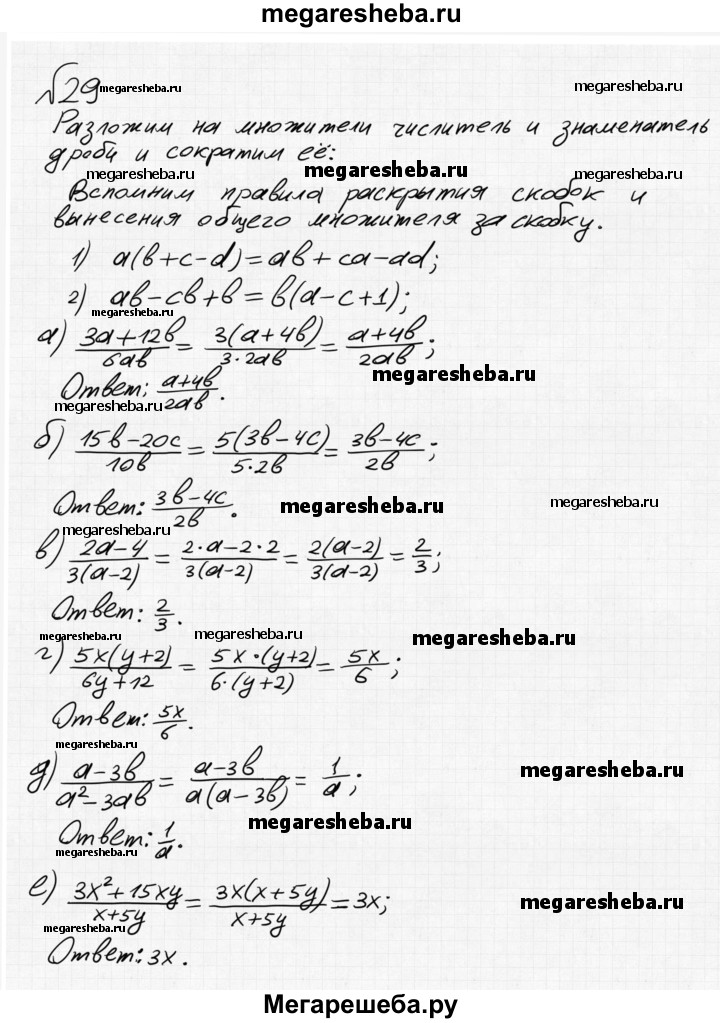 megaresheba.ru
№29 megaresheba.ru megaresheba.ru
Разложим на множители числитель и знаменатель
дроби и сократим её:
megaresheba.ru megaresheba.ru megaresheba.ru
Вспомним правила раскрытия скобок и
вынесения общего множителя за скобку.
1) a(b+c-d)=ab+ca-ad;
2) ab-cb+b=b(a-c+1);
megaresheba.ru
а) (3a+12b)/(6ab) = (3(a+4b))/(3·2ab) = (a+4b)/(2ab);
megaresheba.ru
Ответ: (a+4b)/(2ab).
megaresheba.ru
б) (15b-20c)/(10b) = (5(3b-4c))/(5·2b) = (3b-4c)/(2b);
Ответ: (3b-4c)/(2b). megaresheba.ru megaresheba.ru
megaresheba.ru
в) (2a-4)/(3(a-2)) = (2·a-2·2)/(3(a-2)) = (2(a-2))/(3(a-2)) = 2/3;
Ответ: 2/3.
megaresheba.ru megaresheba.ru megaresheba.ru
г) (5x(y+2))/(6y+12) = (5x·(y+2))/(6·(y+2)) = 5x/6;
Ответ: 5x/6.
megaresheba.ru
д) (a-3b)/(a²-3ab) = (a-3b)/(a(a-3b)) = 1/a; megaresheba.ru
Ответ: 1/a. megaresheba.ru
megaresheba.ru
е) (3x²+15xy)/(x+5y) = (3x(x+5y))/(x+5y) = 3x; megaresheba.ru
megaresheba.ru
Ответ: 3x.
Мегарешеба.ру